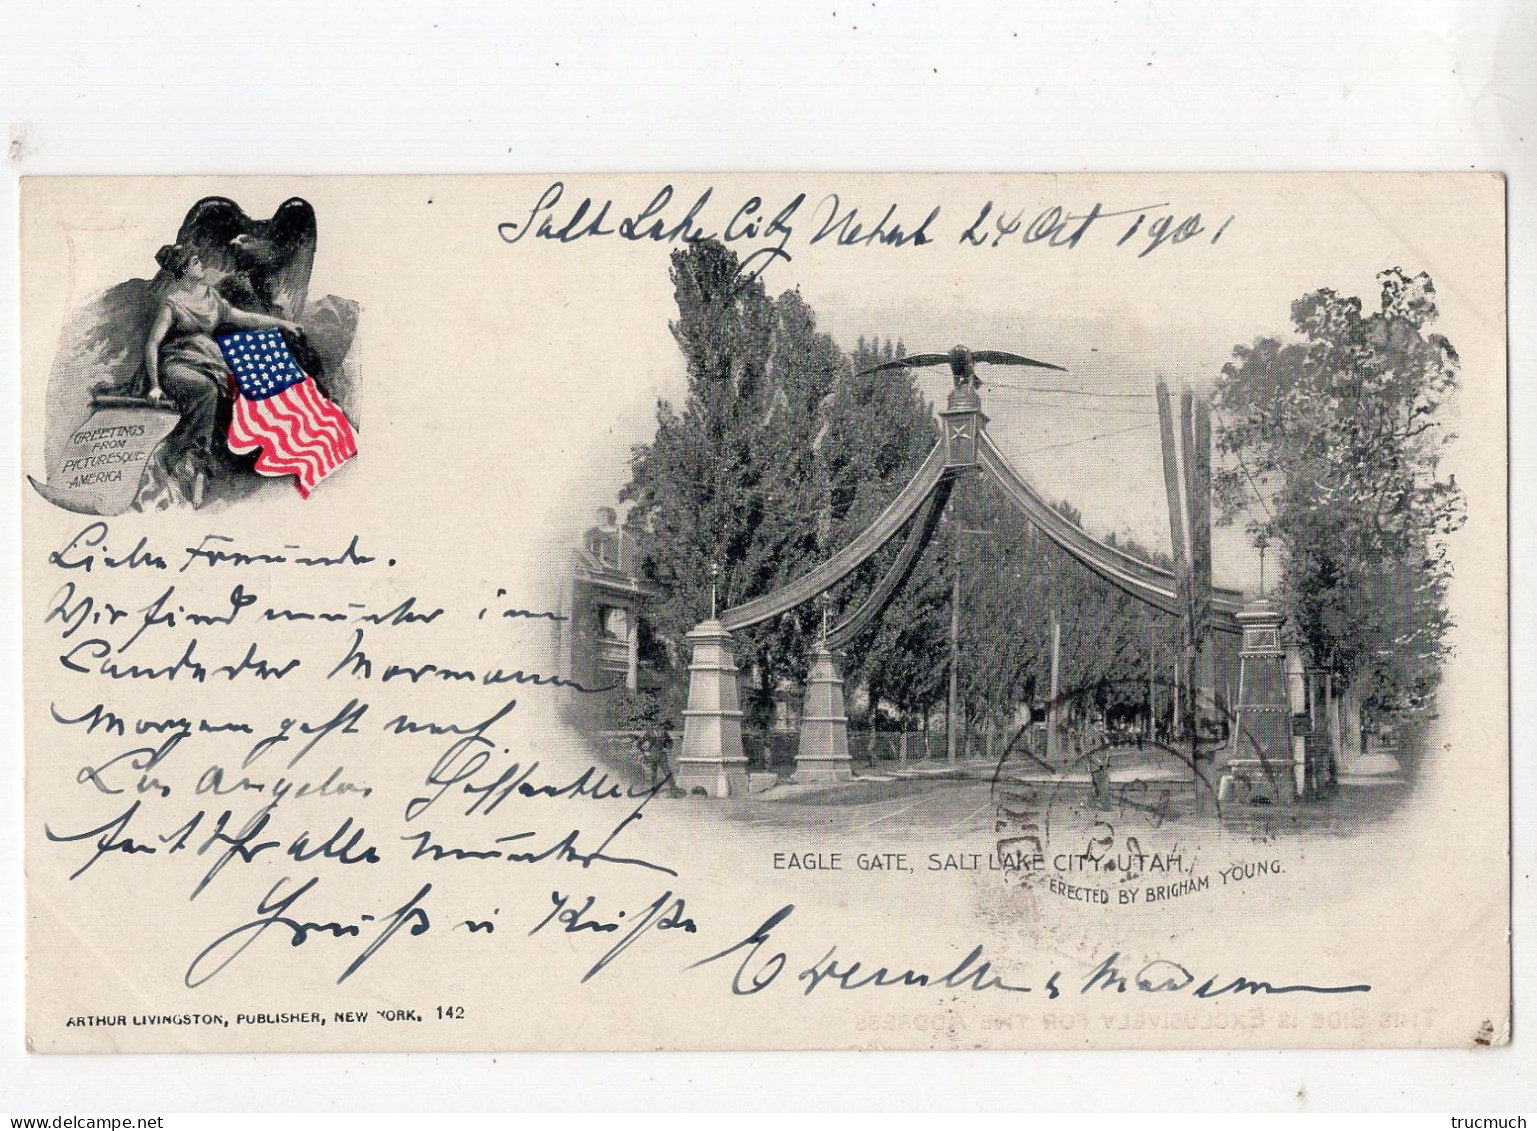 Salt Lake City 24 Oct 1901
GREETINGS
FROM
PICTURESQUE
AMERICA
Liebe Freunde.
Wir sind munter im
Lande der Mormonen
Morgen geht nach
Los Angelos Hoffentlich
seit Ihr alle munter
Gruß u Küße
EAGLE GATE, SALT LAKE CITY, UTAH.
ERECTED BY BRIGHAM YOUNG.
ARTHUR LIVINGSTON, PUBLISHER, NEW YORK. 142
THIS SIDE IS EXCLUSIVELY FOR THE ADDRESS
trucmuch